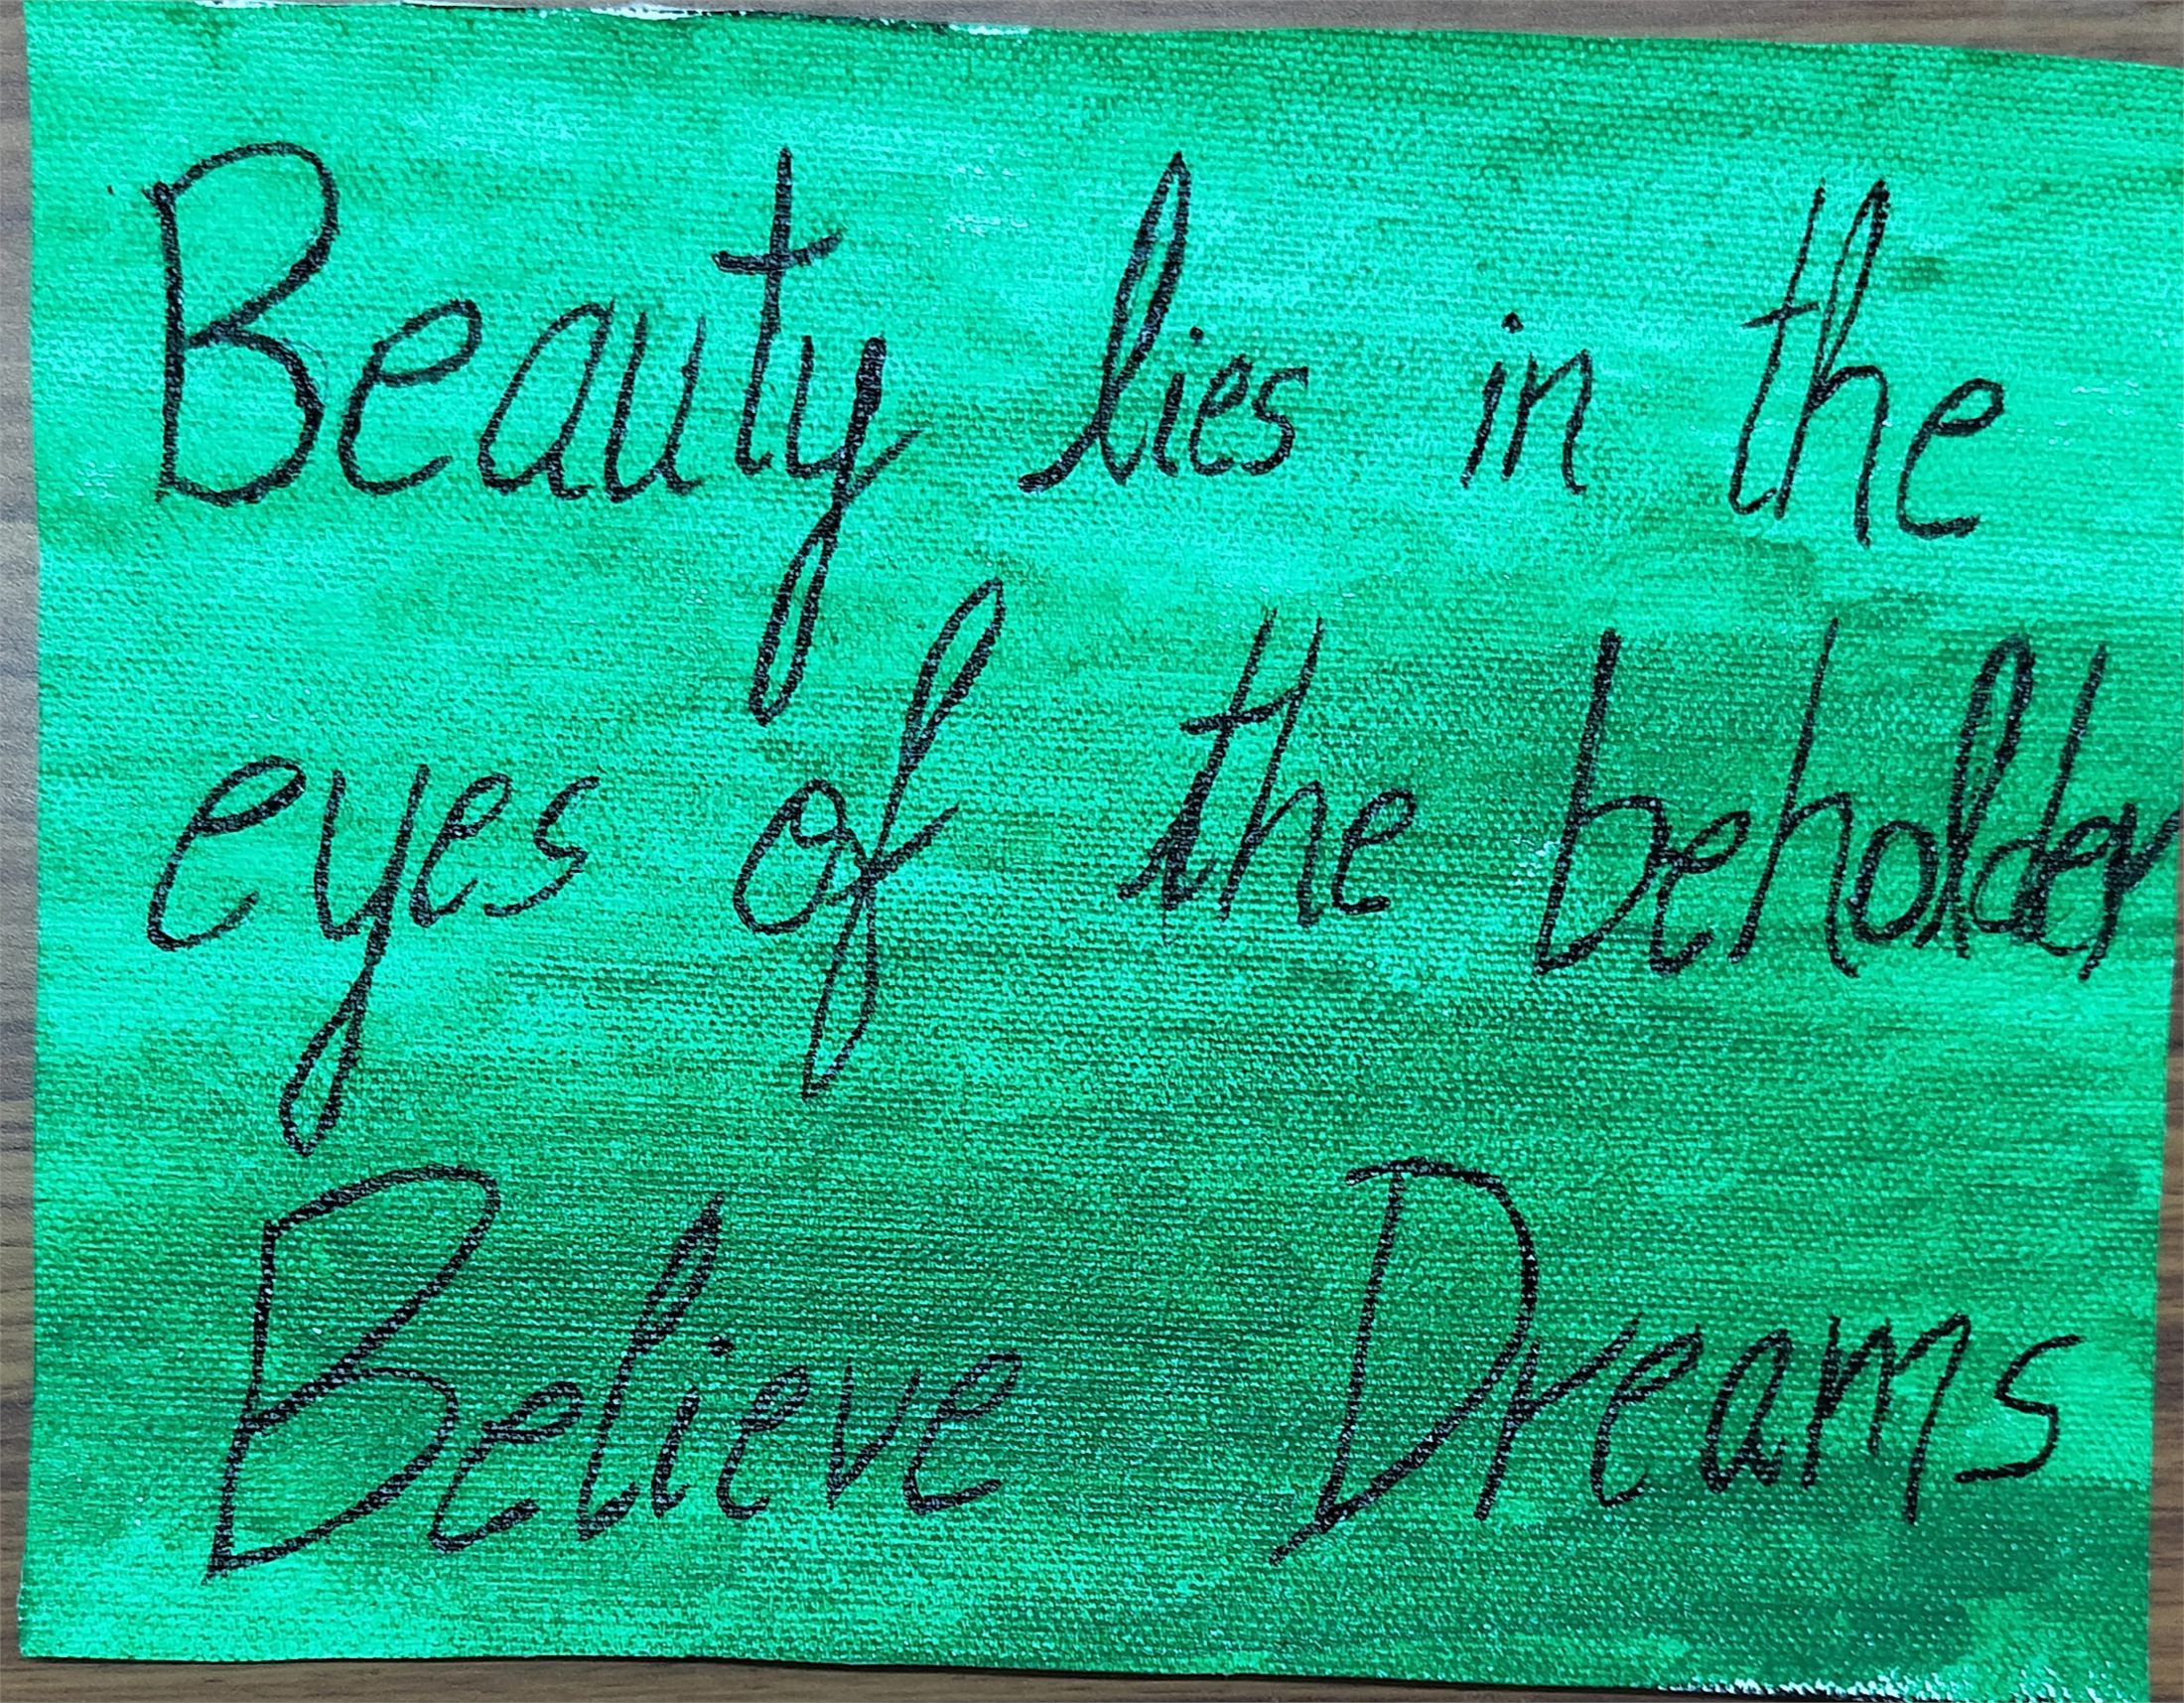 Beauty lies in the
eyes of the beholder
Believe Dreams